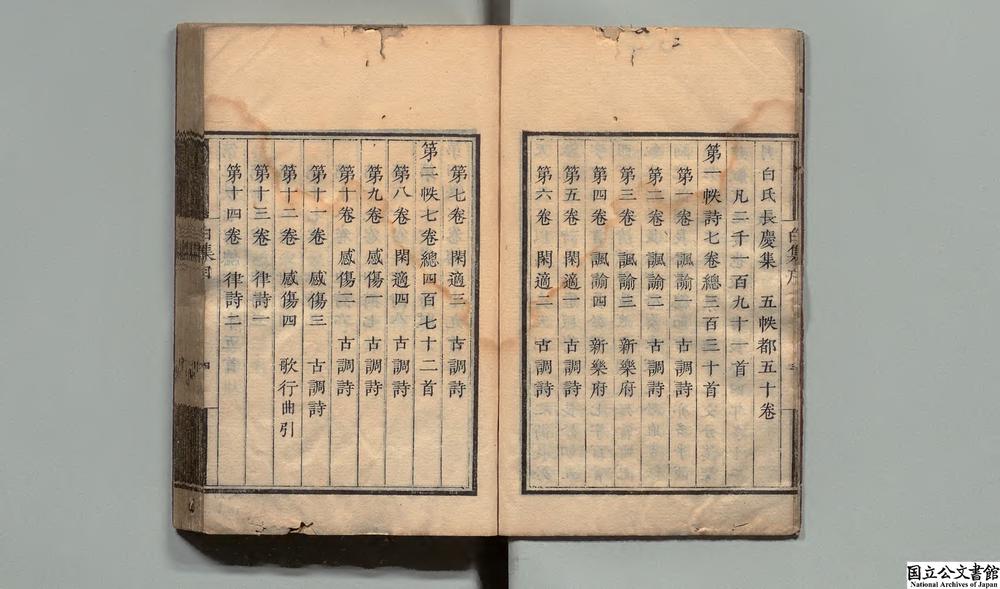 白氏長慶集　五帙都五十卷
凡二千一百九十一首
第一帙詩七卷總三百三十首
第一卷　諷諭一　古調詩
第二卷　諷諭二　古調詩
第三卷　諷諭三　新樂府
第四卷　諷諭四　新樂府
第五卷　閑適一　古調詩
第六卷　閑適二　古調詩
第七卷　閑適三　古調詩
第二帙七卷總四百七十二首
第八卷　閑適四　古調詩
第九卷　感傷一　古調詩
第十卷　感傷二　古調詩
第十一卷　感傷三　古調詩
第十二卷　感傷四　歌行曲引
第十三卷　律詩一
第十四卷　律詩二
白集目
国立公文書館
National Archives of Japan